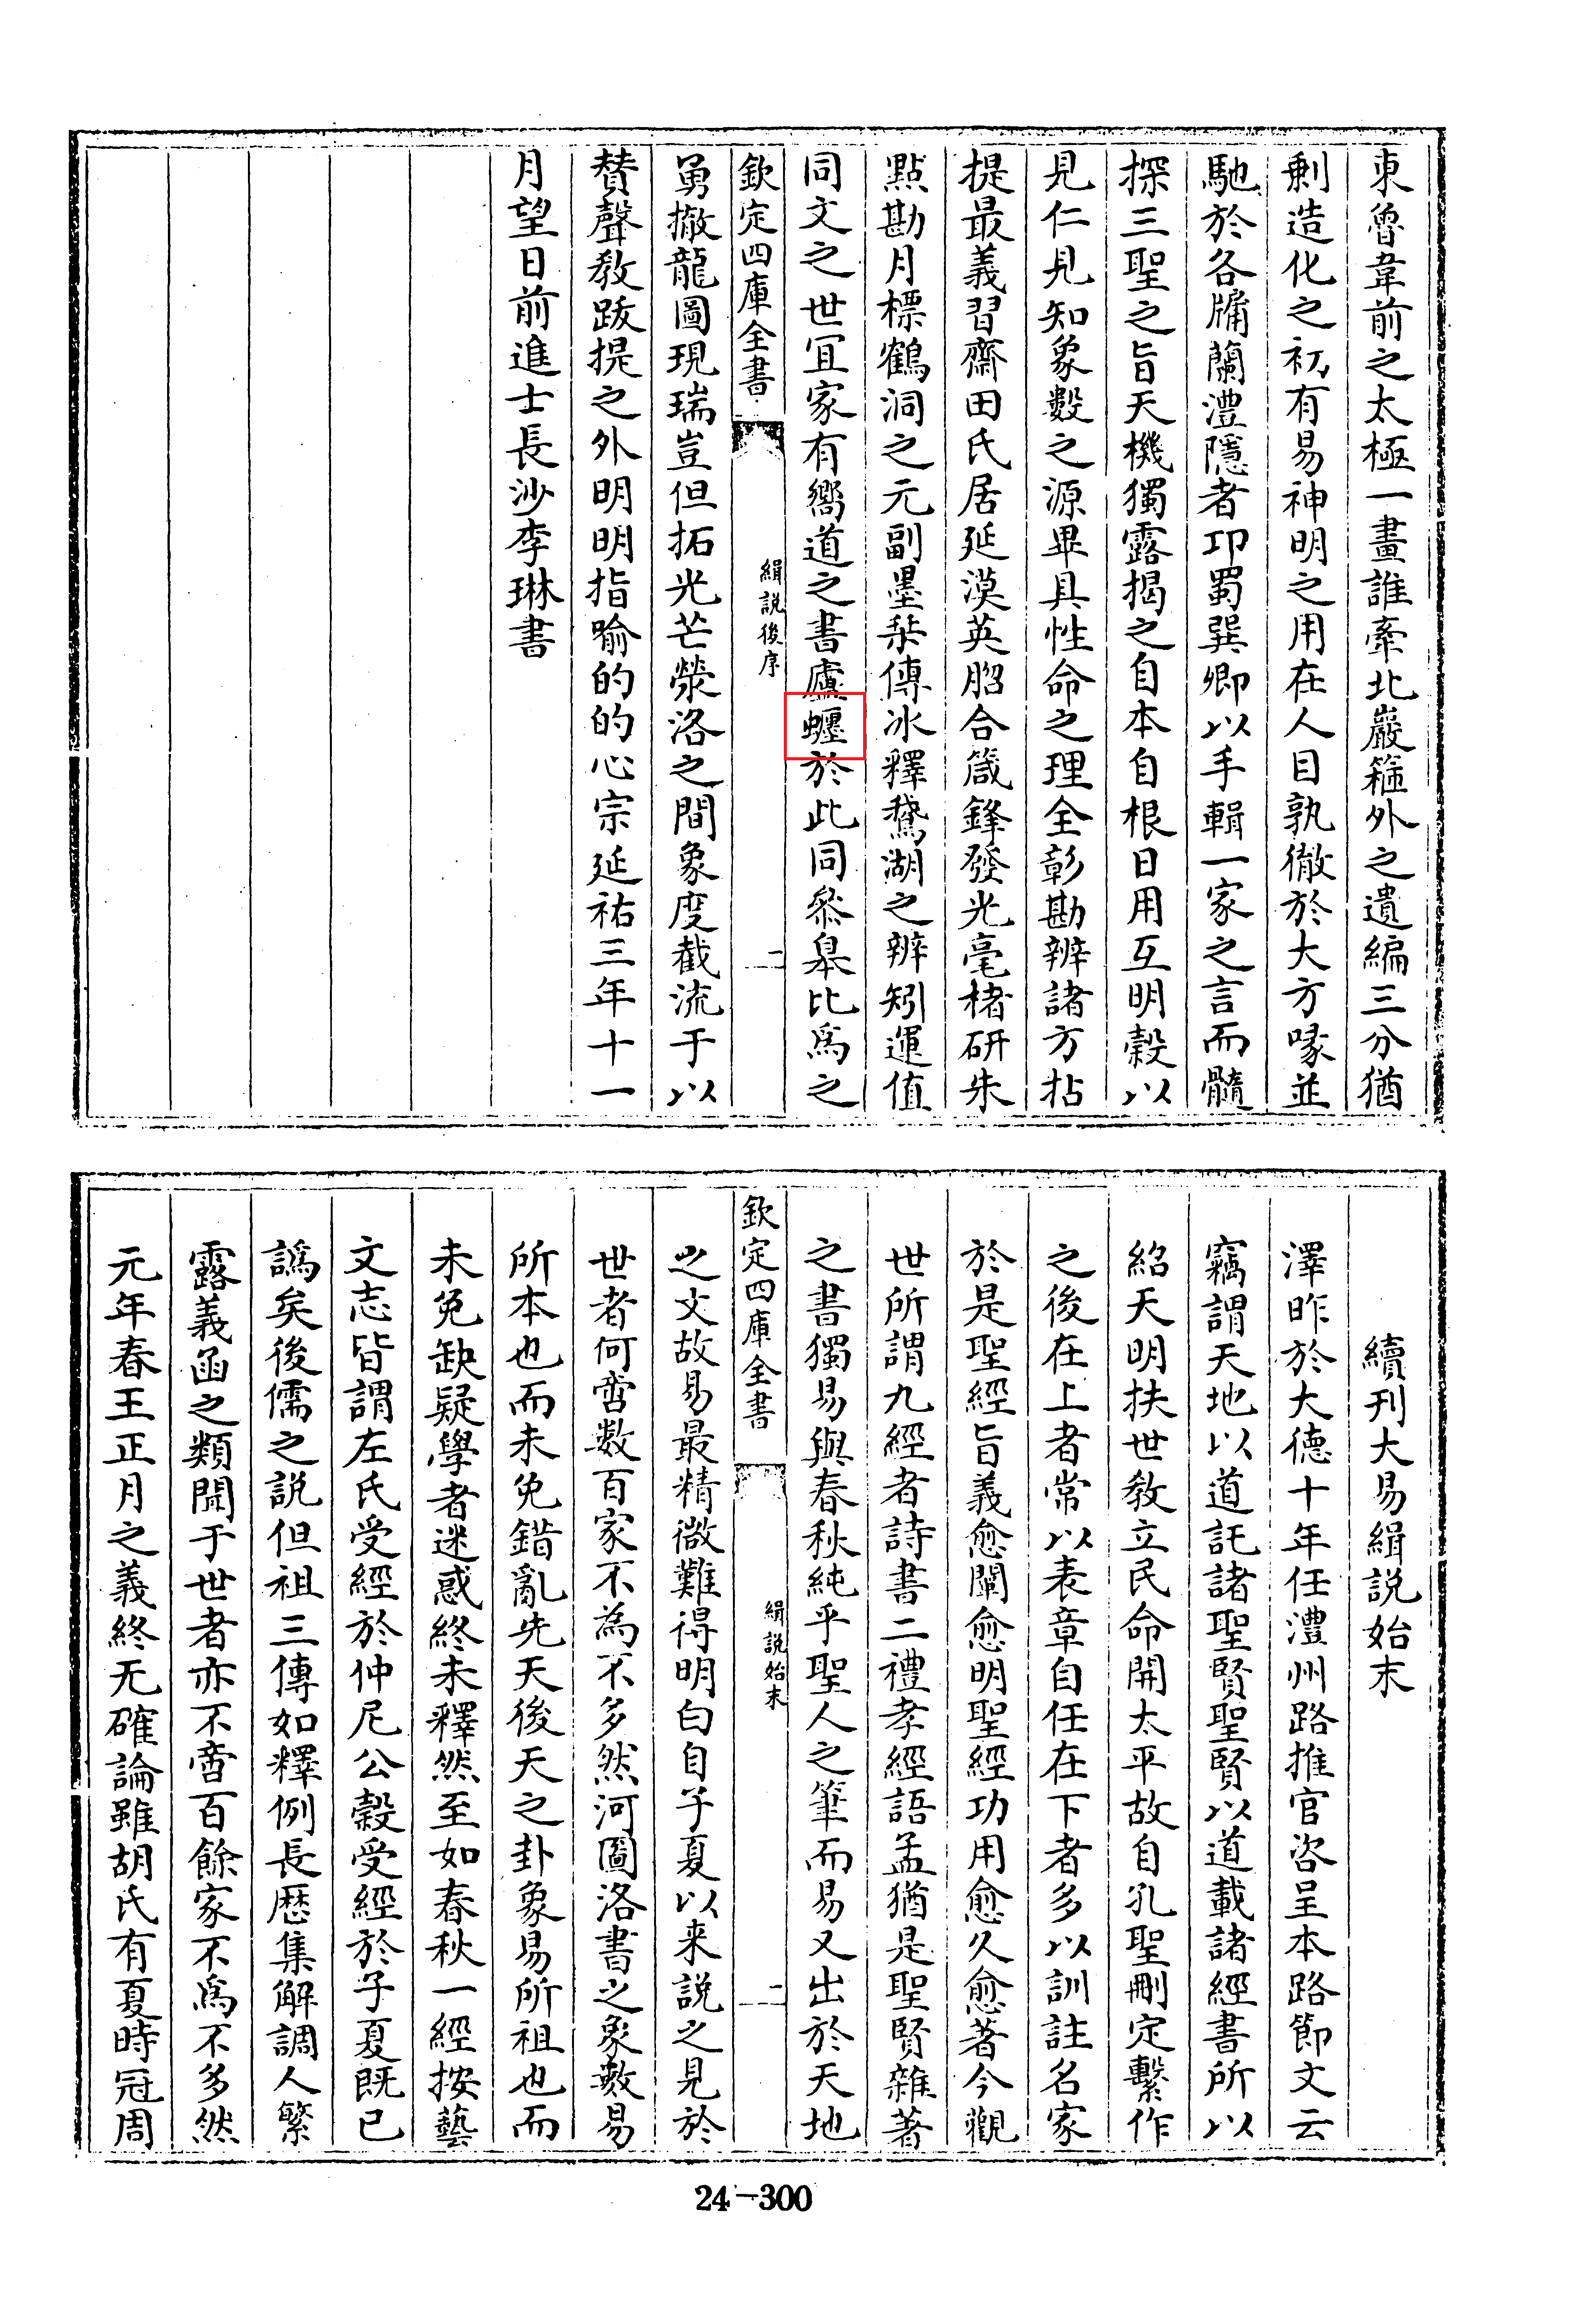 東魯韋前之太極一畫誰牽北巖箍外之遺編三分猶
剰造化之初有易神明之用在人目孰徹於大方喙並
馳於各牖蘭澧隱者卭蜀巽卿以手輯一家之言而髓
探三聖之旨天機獨露揭之自本自根日用互明穀以
見仁見知象數之源畢具性命之理全彰勘辨諸方拈
提最義習齋田氏居延漠英脗合箴鋒發光毫楮研朱
點勘月標鶴洞之元副墨栞傳冰釋鵞湖之辨矧運值
同文之世宜家有嚮道之書廬於此同叅皋比爲之
欽定四庫全書
緝說後序
二
勇撤龍圖現瑞豈但拓光芒滎洛之間象度截流于以
賛聲教跋提之外明明指喻的的心宗延祐三年十一
月望日前進士長沙李琳書
續刋大易緝説始末
澤昨於大德十年任澧州路推官咨呈本路節文云
竊謂天地以道託諸聖賢聖賢以道載諸經書所以
紹天明扶世教立民命開太平故自孔聖刪定繫作
之後在上者常以表章自任在下者多以訓註名家
於是聖經旨義愈闡愈明聖經功用愈久愈著今觀
世所謂九經者詩書二禮孝經語孟猶是聖賢雜著
之書獨易與春秋純乎聖人之筆而易又出於天地
欽定四庫全書
緝說始末
一
之文故易最精微難得明白自子夏以来説之見於
世者何啻数百家不為不多然河圖洛書之象數易
所本也而未免錯亂先天後天之卦象易所祖也而
未免缺疑學者迷惑終未釋然至如春秋一經按藝
文志皆謂左氏受經於仲尼公穀受經於子夏既已
譌矣後儒之説但祖三傳如釋例長歴集解調人繁
露義函之類闘于世者亦不啻百餘家不爲不多然
元年春王正月之義終无確論雖胡氏有夏時冠周
24-300